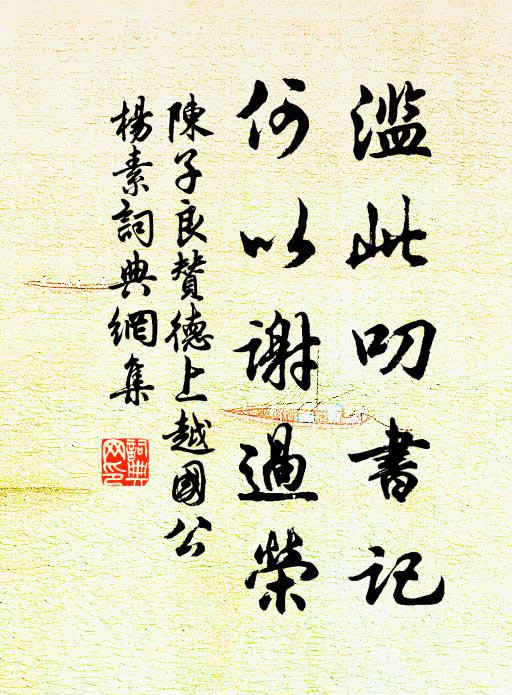 滥此叨書记
何以谢過榮
陳子良赞德上越國公
楊素詞典網集
詞典
网印